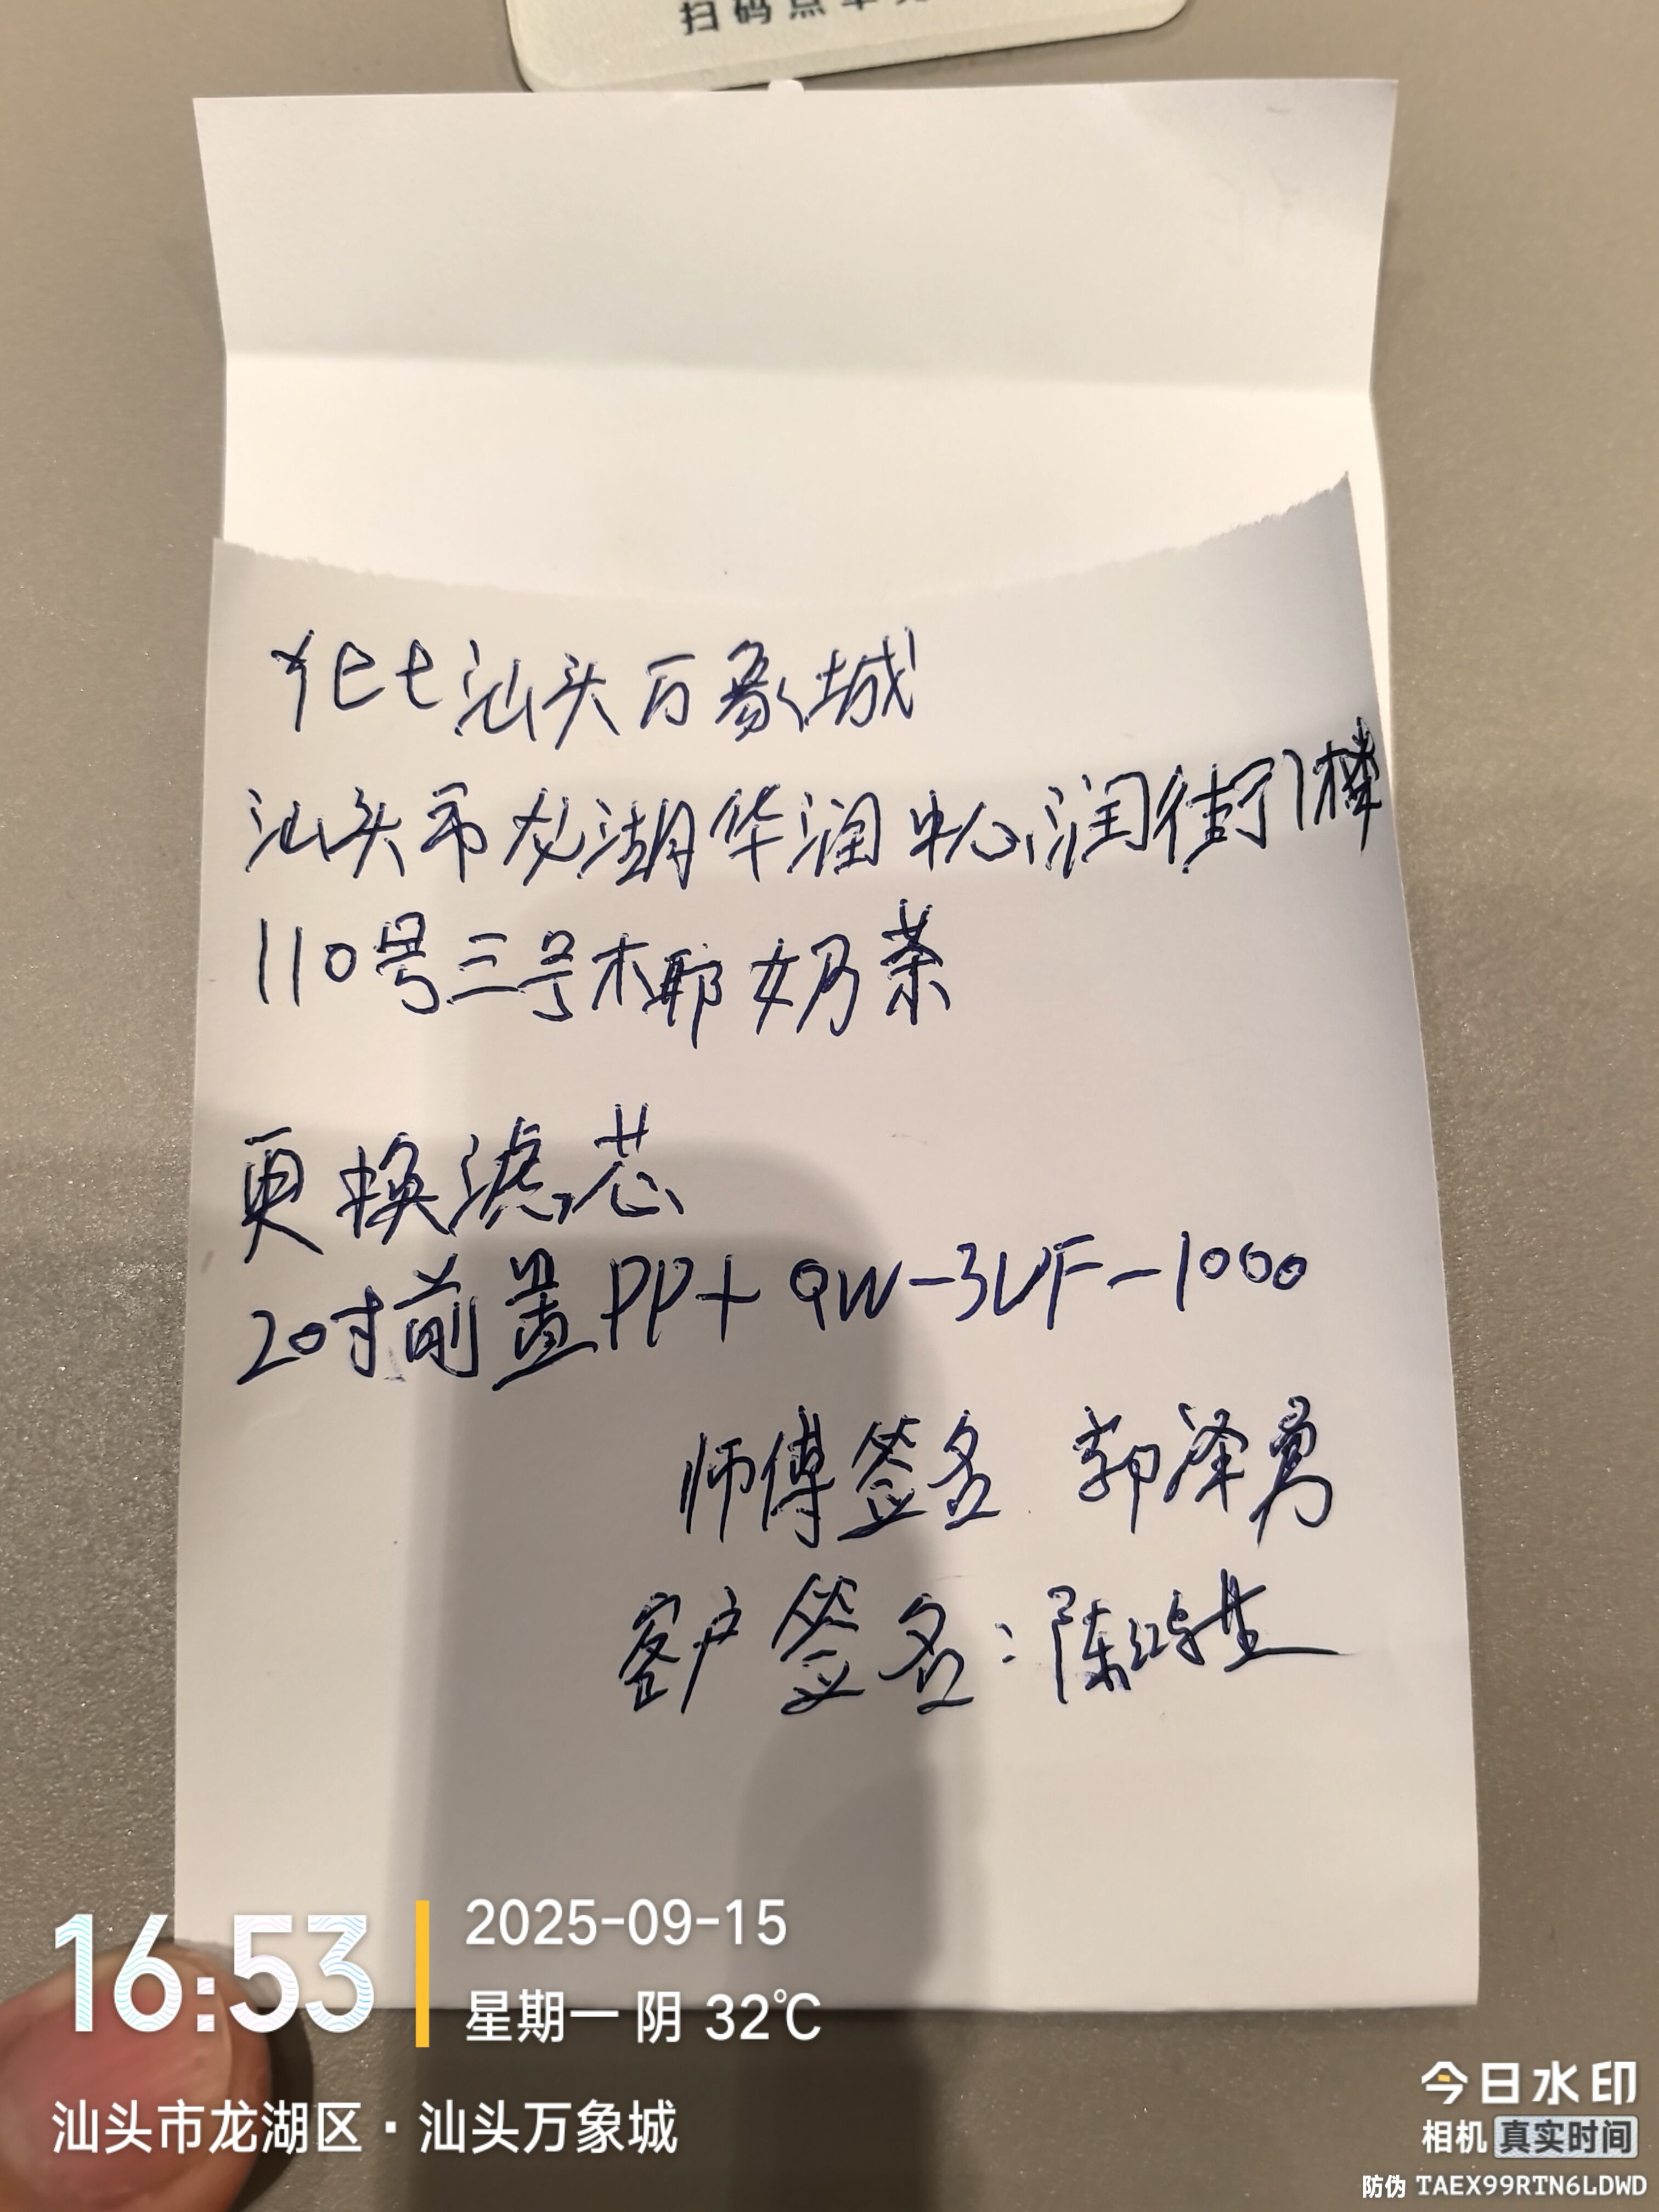 扫码点单
yet汕头万象城
汕头市龙湖华润中心润街1楼
110号三号椰奶茶
更换滤芯
20寸前置PP+QW-3UF-1000
师傅签名 郭泽勇
客户签名:陈鸿生
16:53
2025-09-15
星期一 阴 32℃
汕头市龙湖区·汕头万象城
今日水印
相机 真实时间
防伪 TAEX99RTN6LDWD